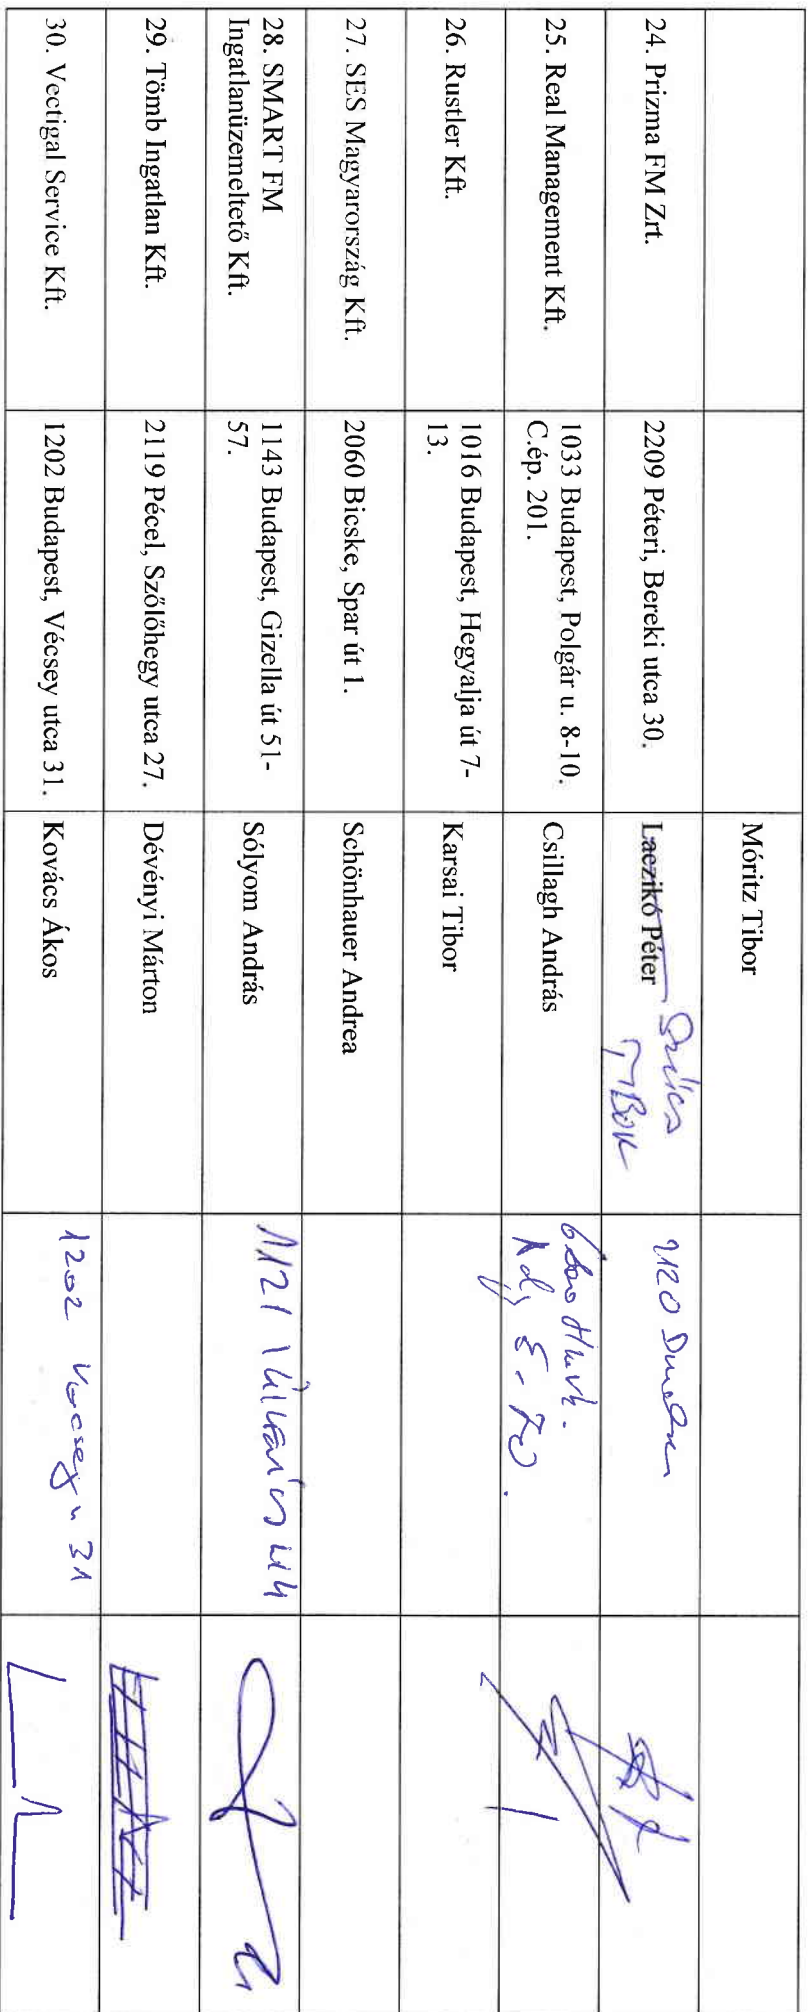 Móritz Tibor
24. Prizma FM Zrt.
2209 Péteri, Bereki utca 30.
Laczikó Péter
Szűcs
TIBOR
2120
25. Real Management Kft.
1033 Budapest, Polgár u. 8-10.
C.ép. 201.
Csillagh András
26. Rustler Kft.
1016 Budapest, Hegyalja út 7-
13.
Karsai Tibor
27. SES Magyarország Kft.
2060 Bicske, Spar út 1.
Schönhauer Andrea
28. SMART FM
Ingatlanüzemeltető Kft.
1143 Budapest, Gizella út 51-
57.
Sólyom András
1121
29. Tömb Ingatlan Kft.
2119 Pécel, Szőlőhegy utca 27.
Dévényi Márton
30. Vectigal Service Kft.
1202 Budapest, Vécsey utca 31.
Kovács Ákos
1202 Vécsey u 31